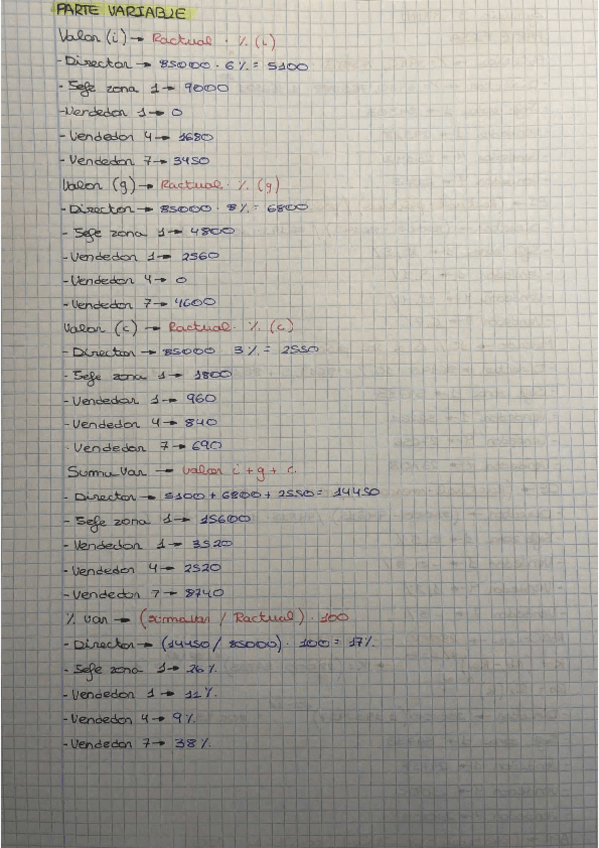 PARTE VARIABLE
Valor (i) → Ractual · % (i)
- Director → 85000 · 6% = 5100
- Jefe zona 1 → 9000
- Vendedor 1 → 0
- Vendedor 4 → 1680
- Vendedor 7 → 3450
Valor (g) → Ractual · % (g)
- Director → 85000 · 8% = 6800
- Jefe zona 1 → 4800
- Vendedor 1 → 2560
- Vendedor 4 → 0
- Vendedor 7 → 4600
Valor (c) → Ractual · % (c)
- Director → 85000 3% = 2550
- Jefe zona 1 → 1800
- Vendedor 1 → 960
- Vendedor 4 → 840
- Vendedor 7 → 690
Suma Var → valor i + g + c
- Director → 5100 + 6800 + 2550 = 14450
- Jefe zona 1 → 15600
- Vendedor 1 → 3520
- Vendedor 4 → 2520
- Vendedor 7 → 8740
% var → (sumavar / Ractual) · 100
- Director → (14450 / 85000) · 100 = 17%
- Jefe zona 1 → 26%
- Vendedor 1 → 11%
- Vendedor 4 → 9%
- Vendedor 7 → 38%